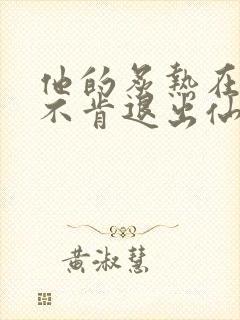 他的炙热在
不肯退出仙
黄淑慧